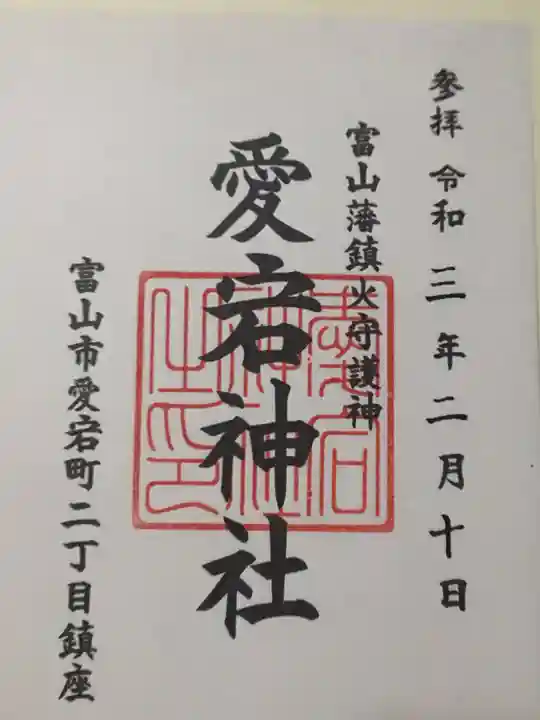 參拝 令和 三年二月十日
富山藩鎮火守護神
愛宕神社
愛宕神社之印
富山市愛宕町二丁目鎮座